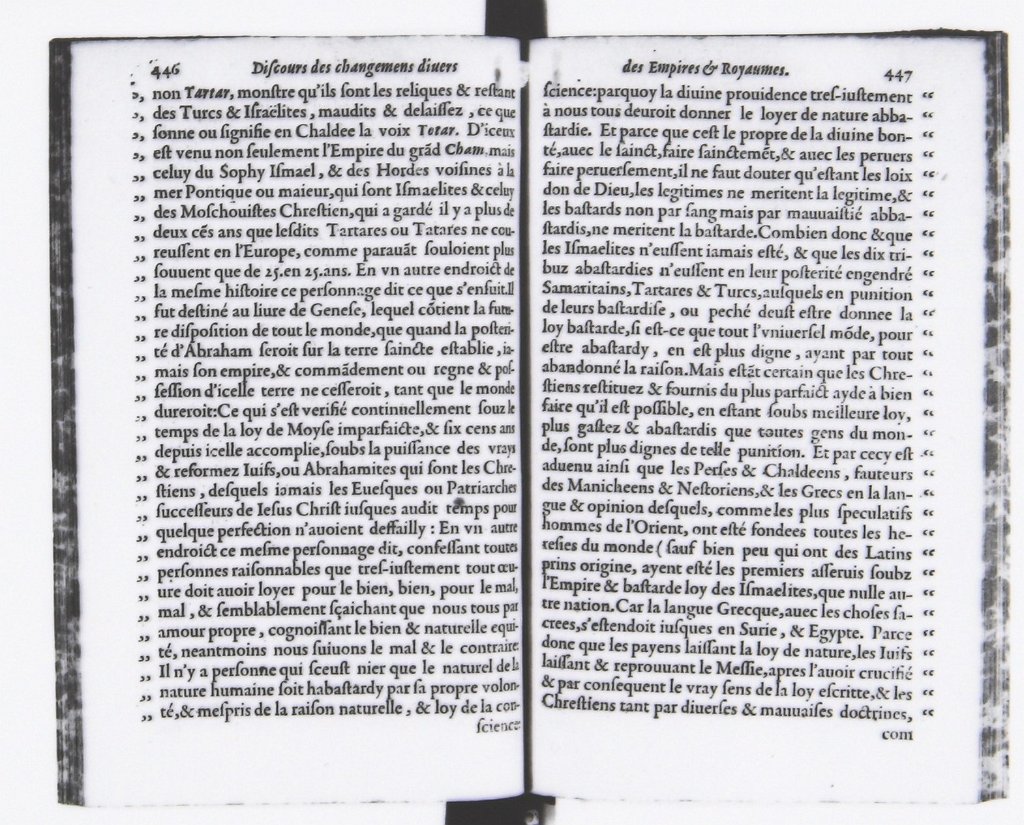 446 Diſcours des changemens diuers
„ non Tartar, monſtre qu'ils ſont les reliques & reſtant
„ des Turcs & Iſraëlites, maudits & delaiſſez, ce que
„ ſonne ou ſignifie en Chaldee la voix Totar. D'iceux
„ eſt venu non ſeulement l'Empire du grãd Cham, mais
„ celuy du Sophy Iſmael, & des Hordes voiſines à la
„ mer Pontique ou maieur, qui ſont Iſmaelites & celuy
„ des Moſchouiſtes Chreſtien, qui a gardé il y a plus de
„ deux cẽs ans que leſdits Tartares ou Tatares ne cou-
„ reuſſent en l'Europe, comme parauãt ſouloient plus
„ ſouuent que de 25. en 25. ans. En vn autre endroict de
„ la meſme hiſtoire ce perſonnage dit ce que s'enſuit. Il
„ fut deſtiné au liure de Geneſe, lequel cõtient la futu-
„ re diſpoſition de tout le monde, que quand la poſteri-
„ té d'Abraham ſeroit ſur la terre ſaincte eſtablie, ia-
„ mais ſon empire, & commãdement ou regne & poſ-
„ ſeſſion d'icelle terre ne ceſſeroit, tant que le monde
„ dureroit: Ce qui s'eſt verifié continuellement ſouz le
„ temps de la loy de Moyſe imparfaicte, & ſix cens ans
„ depuis icelle accomplie, ſoubs la puiſſance des vrays
„ & reformez Iuifs, ou Abrahamites qui ſont les Chre-
„ ſtiens, deſquels iamais les Eueſques ou Patriarches
„ ſucceſſeurs de Ieſus Chriſt iuſques audit temps pour
„ quelque perfection n'auoient deffailly: En vn autre
„ endroict ce meſme perſonnage dit, confeſſant toutes
„ perſonnes raiſonnables que treſ-iuſtement tout œu-
„ ure doit auoir loyer pour le bien, bien, pour le mal,
„ mal, & ſemblablement ſçaichant que nous tous par
„ amour propre, cognoiſſant le bien & naturelle equi-
„ té, neantmoins nous ſuiuons le mal & le contraire.
„ Il n'y a perſonne qui ſceuſt nier que le naturel de la
„ nature humaine ſoit habaſtardy par ſa propre volon-
„ té, & meſpris de la raiſon naturelle, & loy de la con-
ſcience:
des Empires & Royaumes. 447
ſcience: parquoy la diuine prouidence treſ-iuſtement “
à nous tous deuroit donner le loyer de nature abba- “
ſtardie. Et parce que ceſt le propre de la diuine bon- “
té, auec le ſainct, faire ſainctemẽt, & auec les peruers “
faire peruerſement, il ne faut douter qu'eſtant les loix “
don de Dieu, les legitimes ne meritent la legitime, & “
les baſtards non par ſang mais par mauuaiſtié abba- “
ſtardis, ne meritent la baſtarde. Combien donc & que “
les Iſmaelites n'euſſent iamais eſté, & que les dix tri- “
buz abaſtardies n'euſſent en leur poſterité engendré “
Samaritains, Tartares & Turcs, auſquels en punition “
de leurs baſtardiſe, ou peché deuſt eſtre donnee la “
loy baſtarde, ſi eſt-ce que tout l'vniuerſel mõde, pour “
eſtre abaſtardy, en eſt plus digne, ayant par tout “
abandonné la raiſon. Mais eſtãt certain que les Chre- “
ſtiens reſtituez & fournis du plus parfaict ayde à bien “
faire qu'il eſt poſſible, en eſtant ſoubs meilleure loy, “
plus gaſtez & abaſtardis que toutes gens du mon- “
de, ſont plus dignes de telle punition. Et par cecy eſt “
aduenu ainſi que les Perſes & Chaldeens, fauteurs “
des Manicheens & Neſtoriens, & les Grecs en la lan- “
gue & opinion deſquels, comme les plus ſpeculatifs “
hommes de l'Orient, ont eſté fondees toutes les he- “
reſies du monde (ſauf bien peu qui ont des Latins “
prins origine, ayent eſté les premiers aſſeruis ſoubz “
l'Empire & baſtarde loy des Iſmaelites, que nulle au- “
tre nation. Car la langue Grecque, auec les choſes ſa- “
crees, s'eſtendoit iuſques en Surie, & Egypte. Parce “
donc que les payens laiſſant la loy de nature, les Iuifs “
laiſſant & reprouuant le Meſſie, apres l'auoir crucifié “
& par conſequent le vray ſens de la loy eſcritte, & les “
Chreſtiens tant par diuerſes & mauuaiſes doctrines, “
com